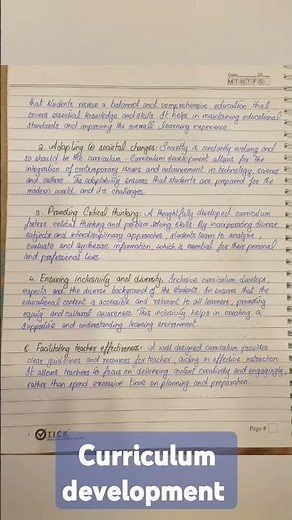 Date 20
M T W T F S
that students receive a balanced and comprehensive education that
covers essential knowledge and skills. It helps in maintaining educational
standards and improving the overall learning experience.
2. Adapting to societal changes: Society is constantly evolving and
so should be the curriculum. Curriculum development allows for the
integration of contemporary issues and advancement in technology, science
and culture. The adaptability ensures that students are prepared for the
modern world and its challenges.
3. Providing Critical thinking: A thoughtfully developed curriculum
fosters critical thinking and problem solving skills. By incorporating diverse
subjects and interdisciplinary approaches, students learn to analyze,
evaluate and synthesize information, which is essential for their personal
and professional lives.
4. Ensuring inclusivity and diversity: Inclusive curriculum develops
respects and the diverse background of the students. It ensures that the
educational content is accessible and relevant to all learners, providing
equity and cultural awareness. This inclusivity helps in creating a
supportive and understanding learning environment.
5. Facilitating teacher effectiveness: A well designed curriculum provides
clear guidelines and resources for teacher, aiding in effective instruction.
It allows teachers to focus on delivering content creatively and engagingly,
rather than spend excessive time on planning and preparation.
TICK
Page #
Curriculum
development